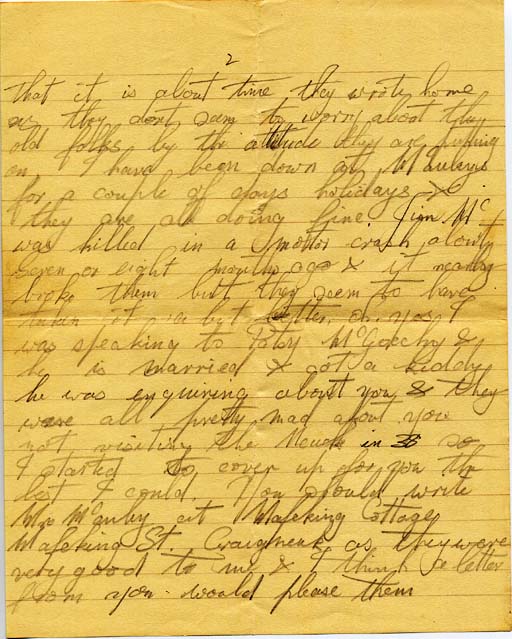 2
that it is about time they wrote home
as they dont seem to worry about the
old folks by the attitude they are putting
on. I have been down at
for a couple of days holidays &
they are all doing fine. Jim Mc
was killed in a motor crash about
seven or eight months ago & it nearly
broke them but they seem to have
taken it a bit better. oh yes I
was speaking to Toby McGeechy &
he is married & got a kiddy
he was enquiring about you & they
were all pretty mad about you
not visiting the in so
I started to cover up for you the
best I could. You should write
Mrs at Mafeking Cottage
Mafeking St. Craigneuk as they were
very good to me & I think a letter
from you would please them